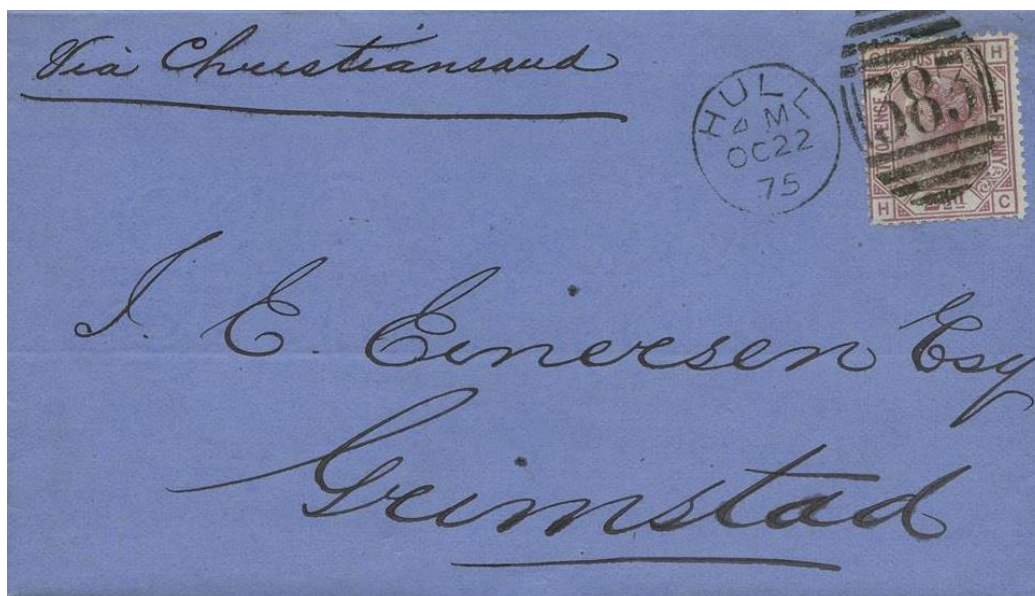 Via Christiansand
HULL
M
OC 22
75
383
POSTAGE
H
H
C
I. E. Einersen Esq
Grimstad